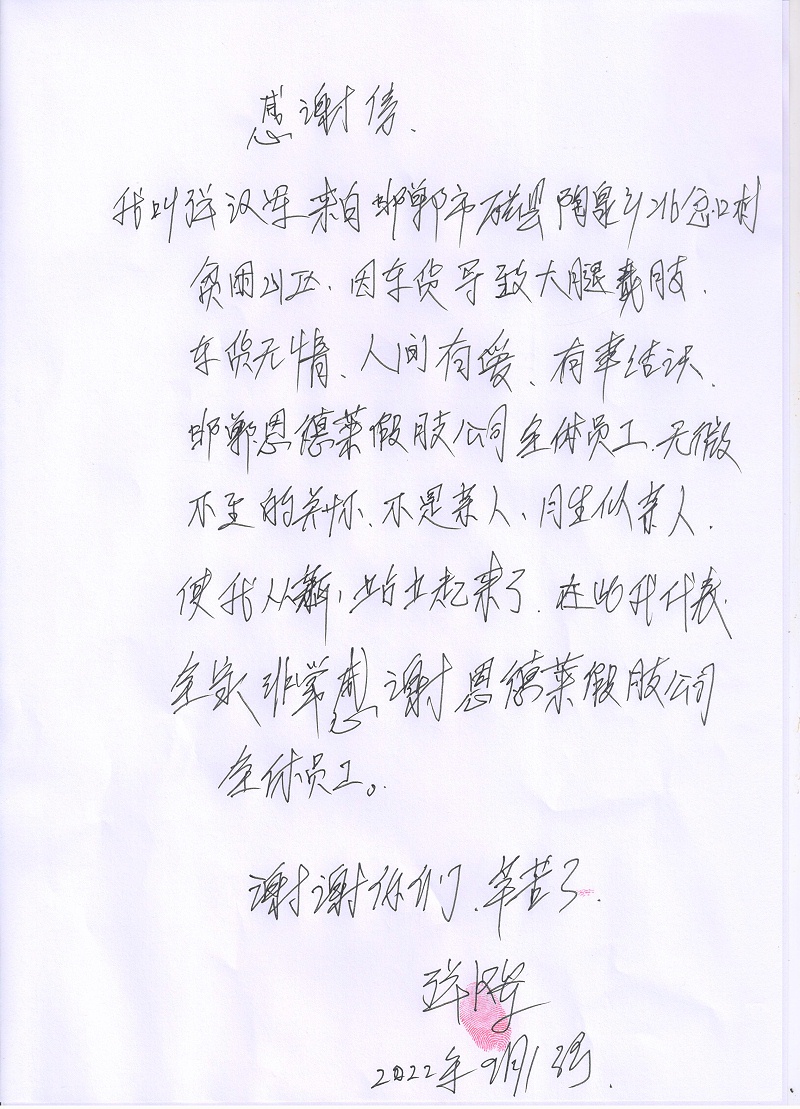 感谢信.
我叫张汉军来自邯郸市磁县陶泉乡北岔口村
贫困山区.因车货导致大腿截肢.
车货无情、人间有爱、有幸结识、
邯郸恩德莱假肢公司全体员工.无微
不至的关怀、不是亲人、月生似亲人.
使我从新,站立起来了.在此我代表
全家非常感谢恩德莱假肢公司
全体员工。
谢谢你们.辛苦了.
张汉军
2022年9月13号.